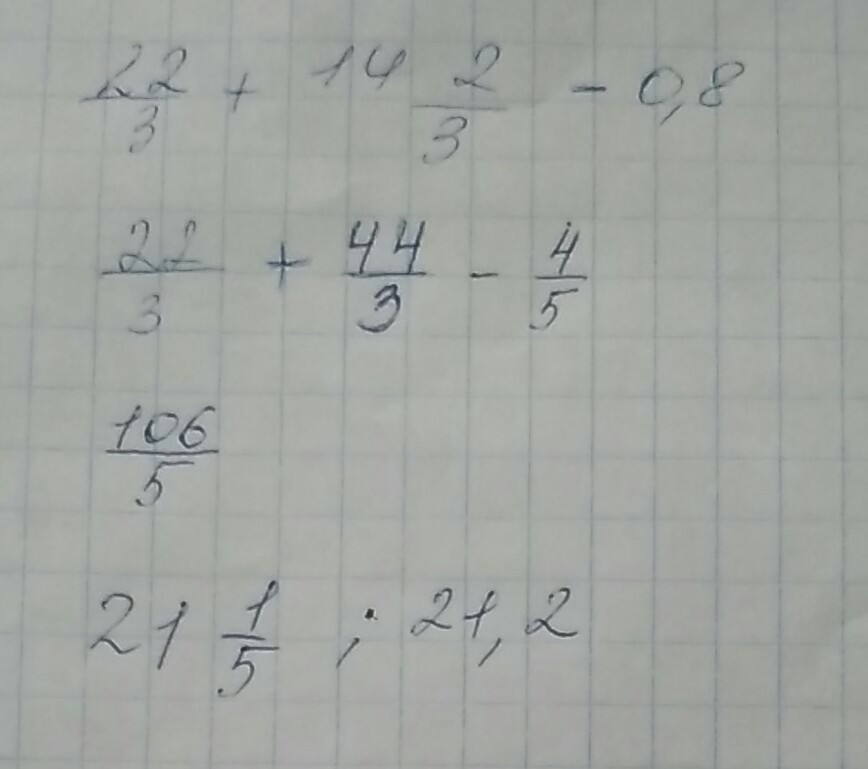 22/3 + 14 2/3 - 0,8
22/3 + 44/3 - 4/5
106/5
21 1/5 ; 21,2